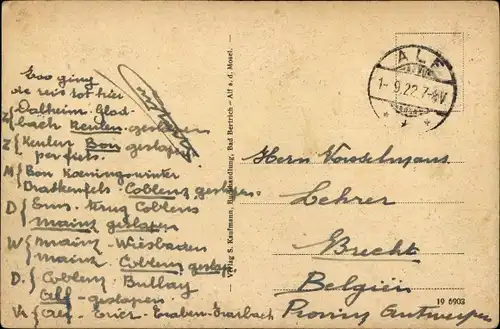 Zoo ging
de reis tot hier
Z { Dalheim. Glad-
bach Keulen - geslapen
Z { Keulen Bon geslapen
per fiets.
M { Bon Koeningswinter
Drakenfels - Coblenz geslapen
D { Ems. terug Coblens
Mainz geslapen
W { Mainz - Wiesbaden
Mainz. Coblenz geslap
D. { Coblenz. Bullay
Alf - geslapen.
V. { Alf. Traben-Trarbach
Verlag S. Kaufmann, Buchhandlung, Bad Bertrich - Alf a. d. Mosel.
ALF
1-9.22.7-8V
Herrn Vorselmans
Lehrer
Brecht
Belgien
Provinz Antwerpen
19 6903